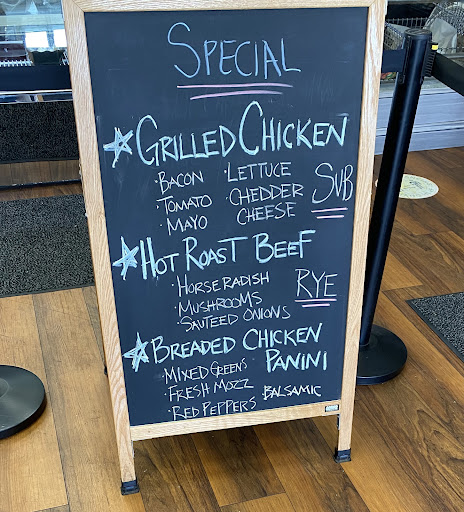 SPECIAL
GRILLED CHICKEN
· BACON · LETTUCE SUB
· TOMATO · CHEDDER
· MAYO CHEESE
HOT ROAST BEEF
· HORSERADISH RYE
· MUSHROOMS
· SAUTEED ONIONS
BREADED CHICKEN
· MIXED GREENS PANINI
· FRESH MOZZ BALSAMIC
· RED PEPPERS